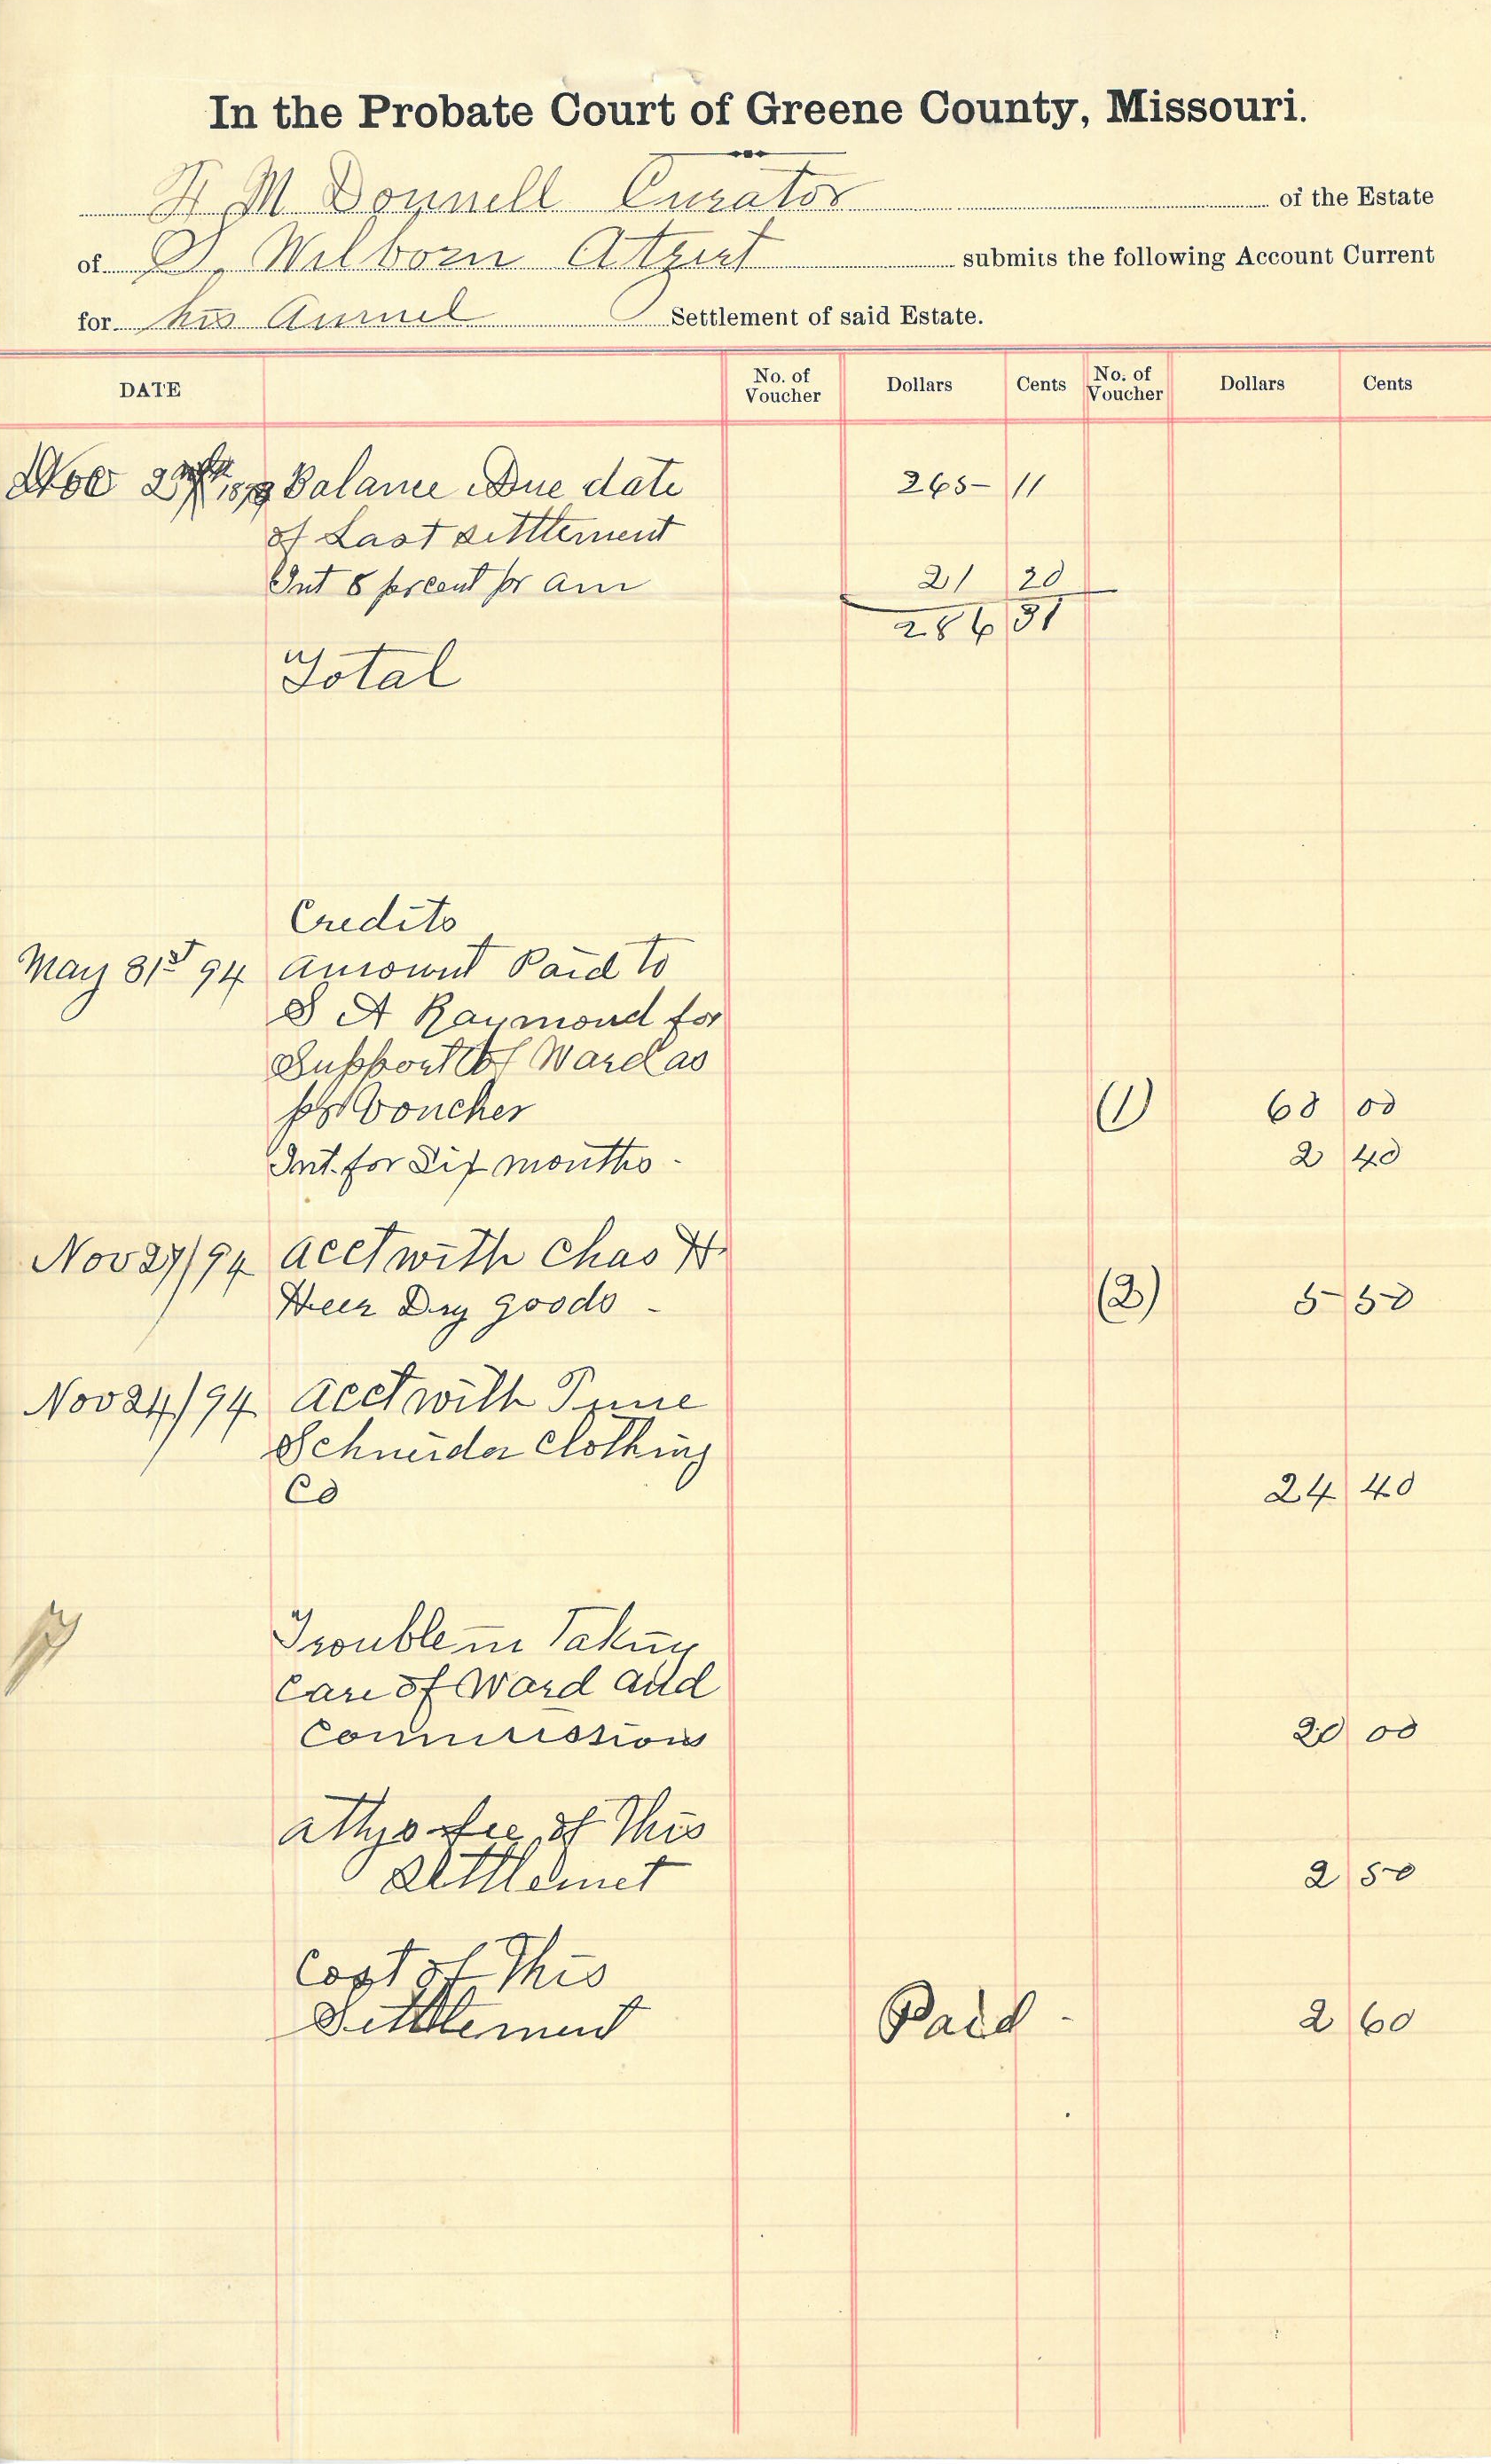 In the Probate Court of Greene County, Missouri.
F M Donnell Curator of the Estate
of S. Wilborn Atzert submits the following Account Current
for his Annuel Settlement of said Estate.
DATE No. of Voucher Dollars Cents No. of Voucher Dollars Cents
Nov 27th 1893 Balance Due date 265 11
of Last settlement
Int 8 percent pr am 21 20
286 31
Total
Credits
May 31st 94 Amount Paid to
S A Raymond for
Support of Ward as
pr Voucher (1) 60 00
Int. for Six months - 2 40
Nov 27/94 Acct with Chas H
Heer Dry goods - (2) 5 50
Nov 24/94 Acct with
Schneider Clothing
Co 24 40
Trouble in Taking
Care of Ward and
Commissions 20 00
Attys fee of This
Settlemet 2 50
Cost of This
Settlement Paid - 2 60